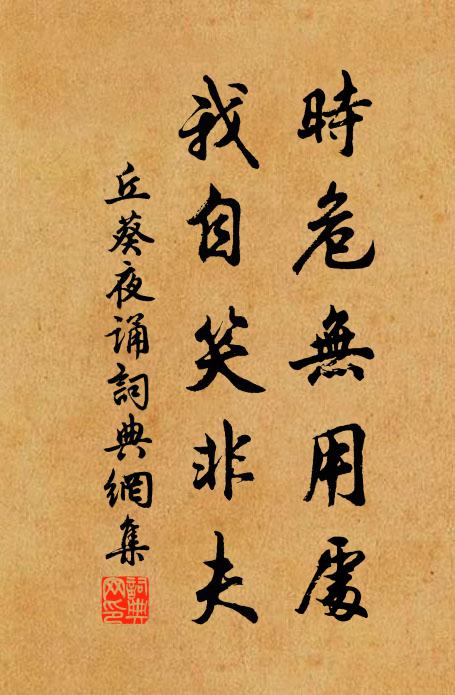 時危無用處
我自笑非夫
丘葵夜誦詞典網集
詞典網印